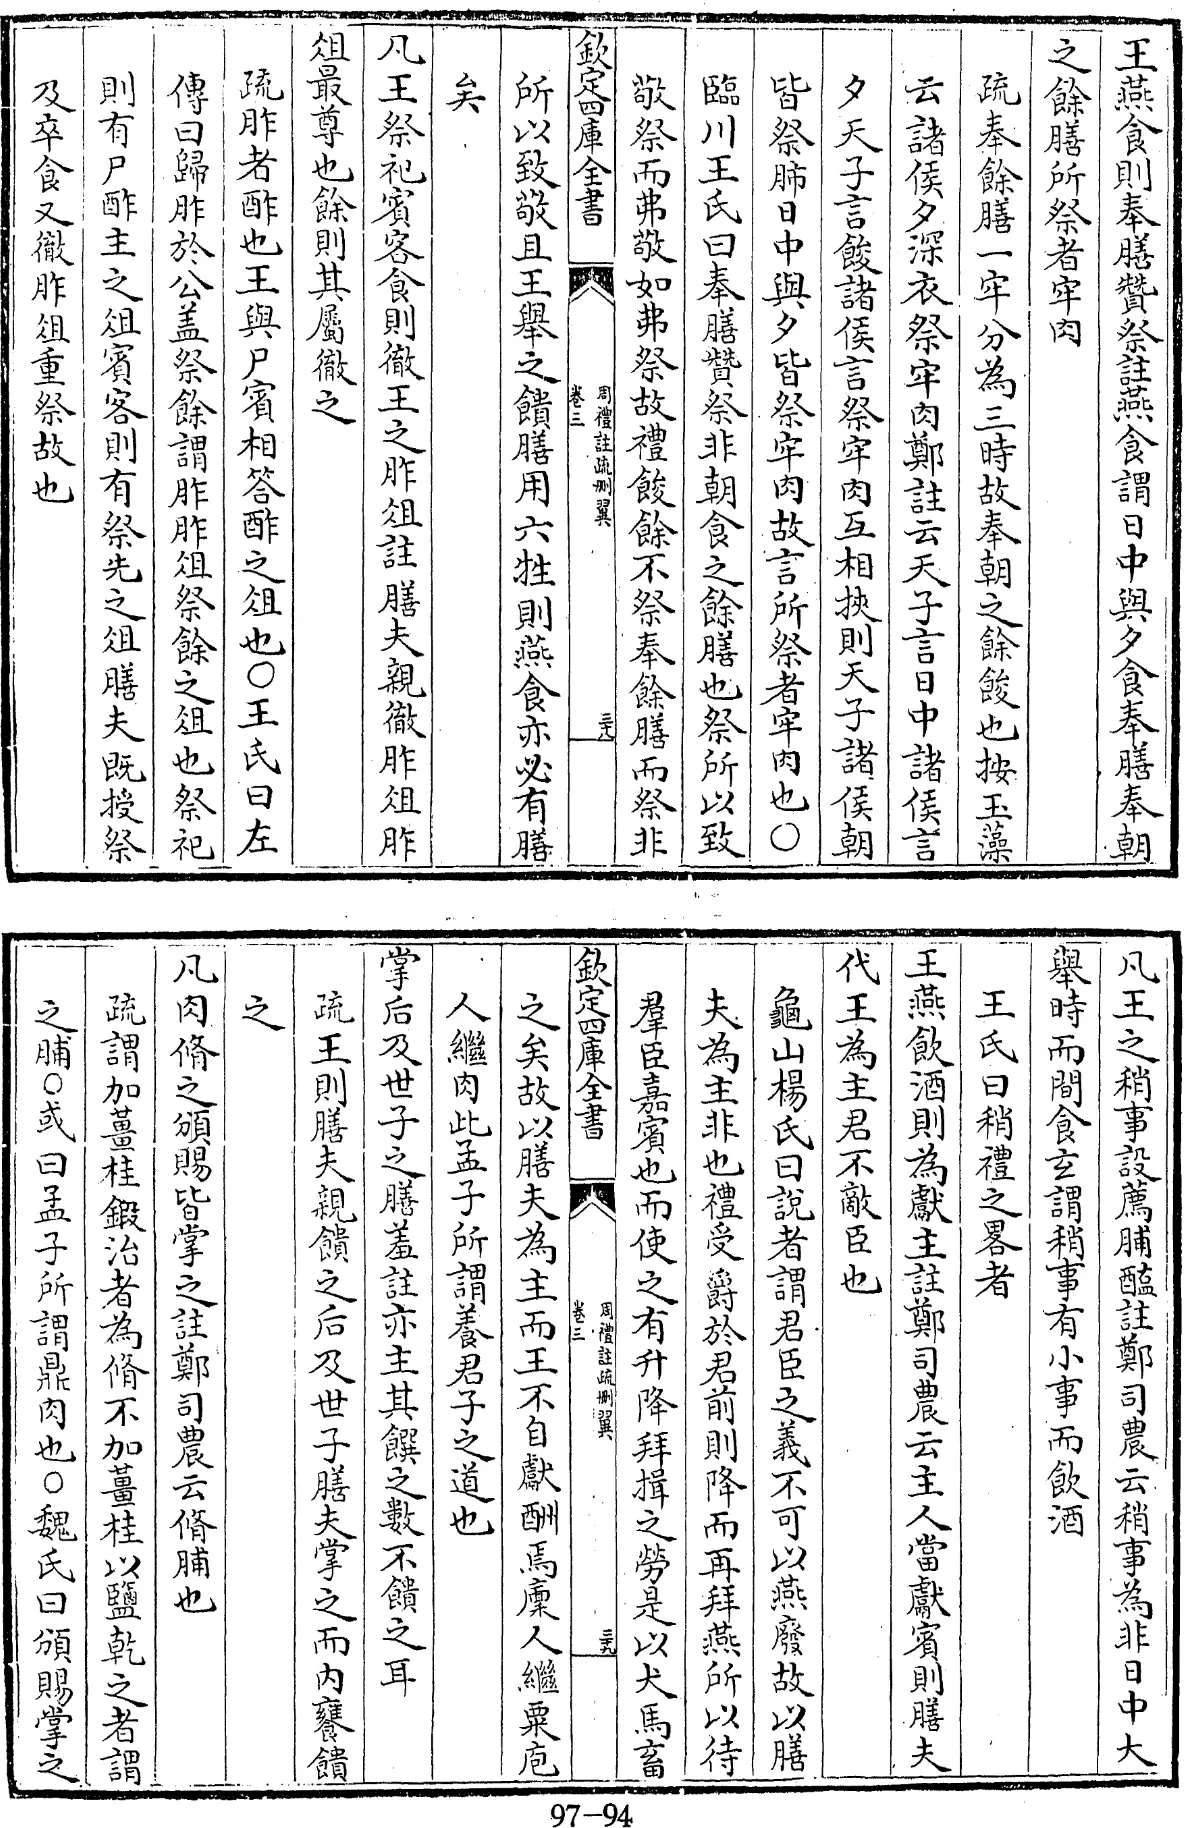 王燕食則奉膳贊祭註燕食謂日中與夕食奉膳奉朝
之餘膳所祭者牢肉
疏奉餘膳一牢分為三時故奉朝之餘餕也按玉藻
云諸侯夕深衣祭牢肉鄭註云天子言日中諸侯言
夕天子言餕諸侯言祭牢肉互相挾則天子諸侯朝
皆祭肺日中與夕皆祭牢肉故言所祭者牢肉也〇
臨川王氏曰奉膳贊祭非朝食之餘膳也祭所以致
敬祭而弗敬如弗祭故禮餕餘不祭奉餘膳而祭非
欽定四庫全書
周禮註疏刪翼
卷三
三十八
所以致敬且王舉之饋膳用六牲則燕食亦必有膳
矣
凡王祭祀賓客食則徹王之胙俎註膳夫親徹胙俎胙
俎最尊也餘則其屬徹之
疏胙者酢也王與尸賓相答酢之俎也〇王氏曰左
傳曰歸胙於公盖祭餘謂胙胙俎祭餘之俎也祭祀
則有尸酢主之俎賓客則有祭先之俎膳夫既授祭
及卒食又徹胙俎重祭故也
凡王之稍事設薦脯醢註鄭司農云稍事為非日中大
舉時而間食玄謂稍事有小事而飲酒
王氏曰稍禮之畧者
王燕飲酒則為獻主註鄭司農云主人當獻賓則膳夫
代王為主君不敵臣也
龜山楊氏曰說者謂君臣之義不可以燕廢故以膳
夫為主非也禮受爵於君前則降而再拜燕所以待
羣臣嘉賓也而使之有升降拜揖之勞是以犬馬畜
欽定四庫全書
周禮註疏刪翼
卷三
三十九
之矣故以膳夫為主而王不自獻酬焉廩人繼粟庖
人繼肉此孟子所謂養君子之道也
掌后及世子之膳羞註亦主其饌之數不饋之耳
疏王則膳夫親饋之后及世子膳夫掌之而內饔饋
之
凡肉脩之頒賜皆掌之註鄭司農云脩脯也
疏謂加薑桂鍛治者為脩不加薑桂以鹽乾之者謂
之脯〇或曰孟子所謂鼎肉也〇魏氏曰頒賜掌之
97-94